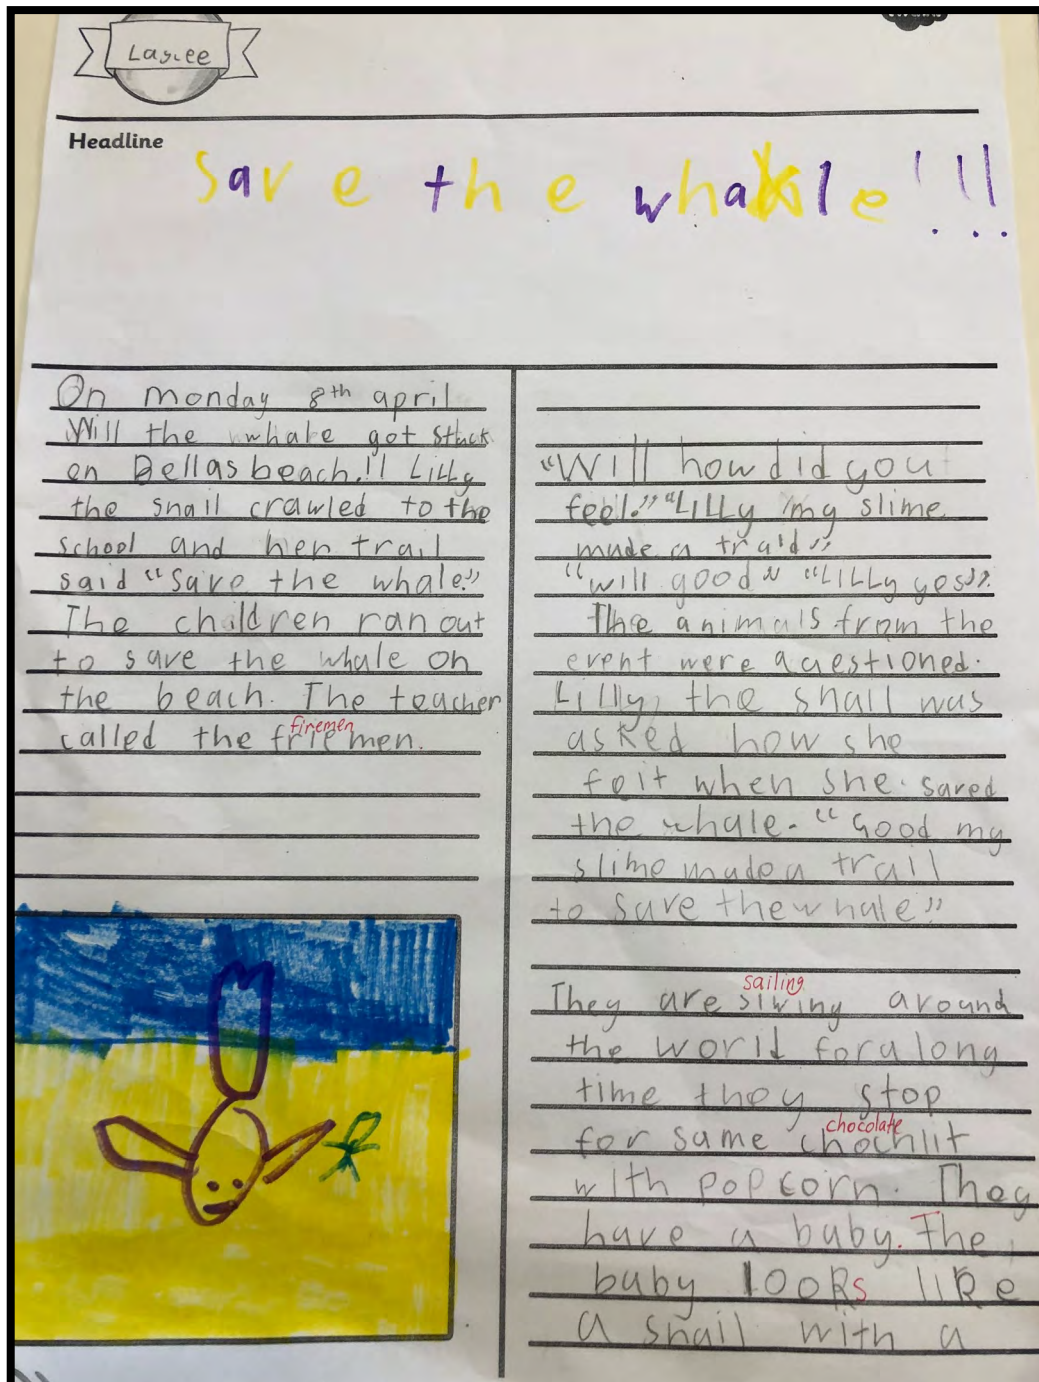 Headline
save the whale!!!
On monday 8th april
Will the whale got stuck
on Bellas beach.!! Lilly
the snail crawled to the
school and her trail
said “save the whale.”
The children ran out
to save the whale on
the beach. The teacher
firemen
called the friemen.
“Will how did you
feel.” “Lilly my slime
made a traid”
“will good” “Lilly yes”.
The animals from the
event were auestioned.
Lilly, the snail was
asked how she
felt when she saved
the whale. “Good my
slime made a trail
to save the whale”
sailing
They are siwing around
the world for a long
time they stop
chocolate
for same chochlit
with popcorn. They
have a baby. The
baby looks like
a snail with a